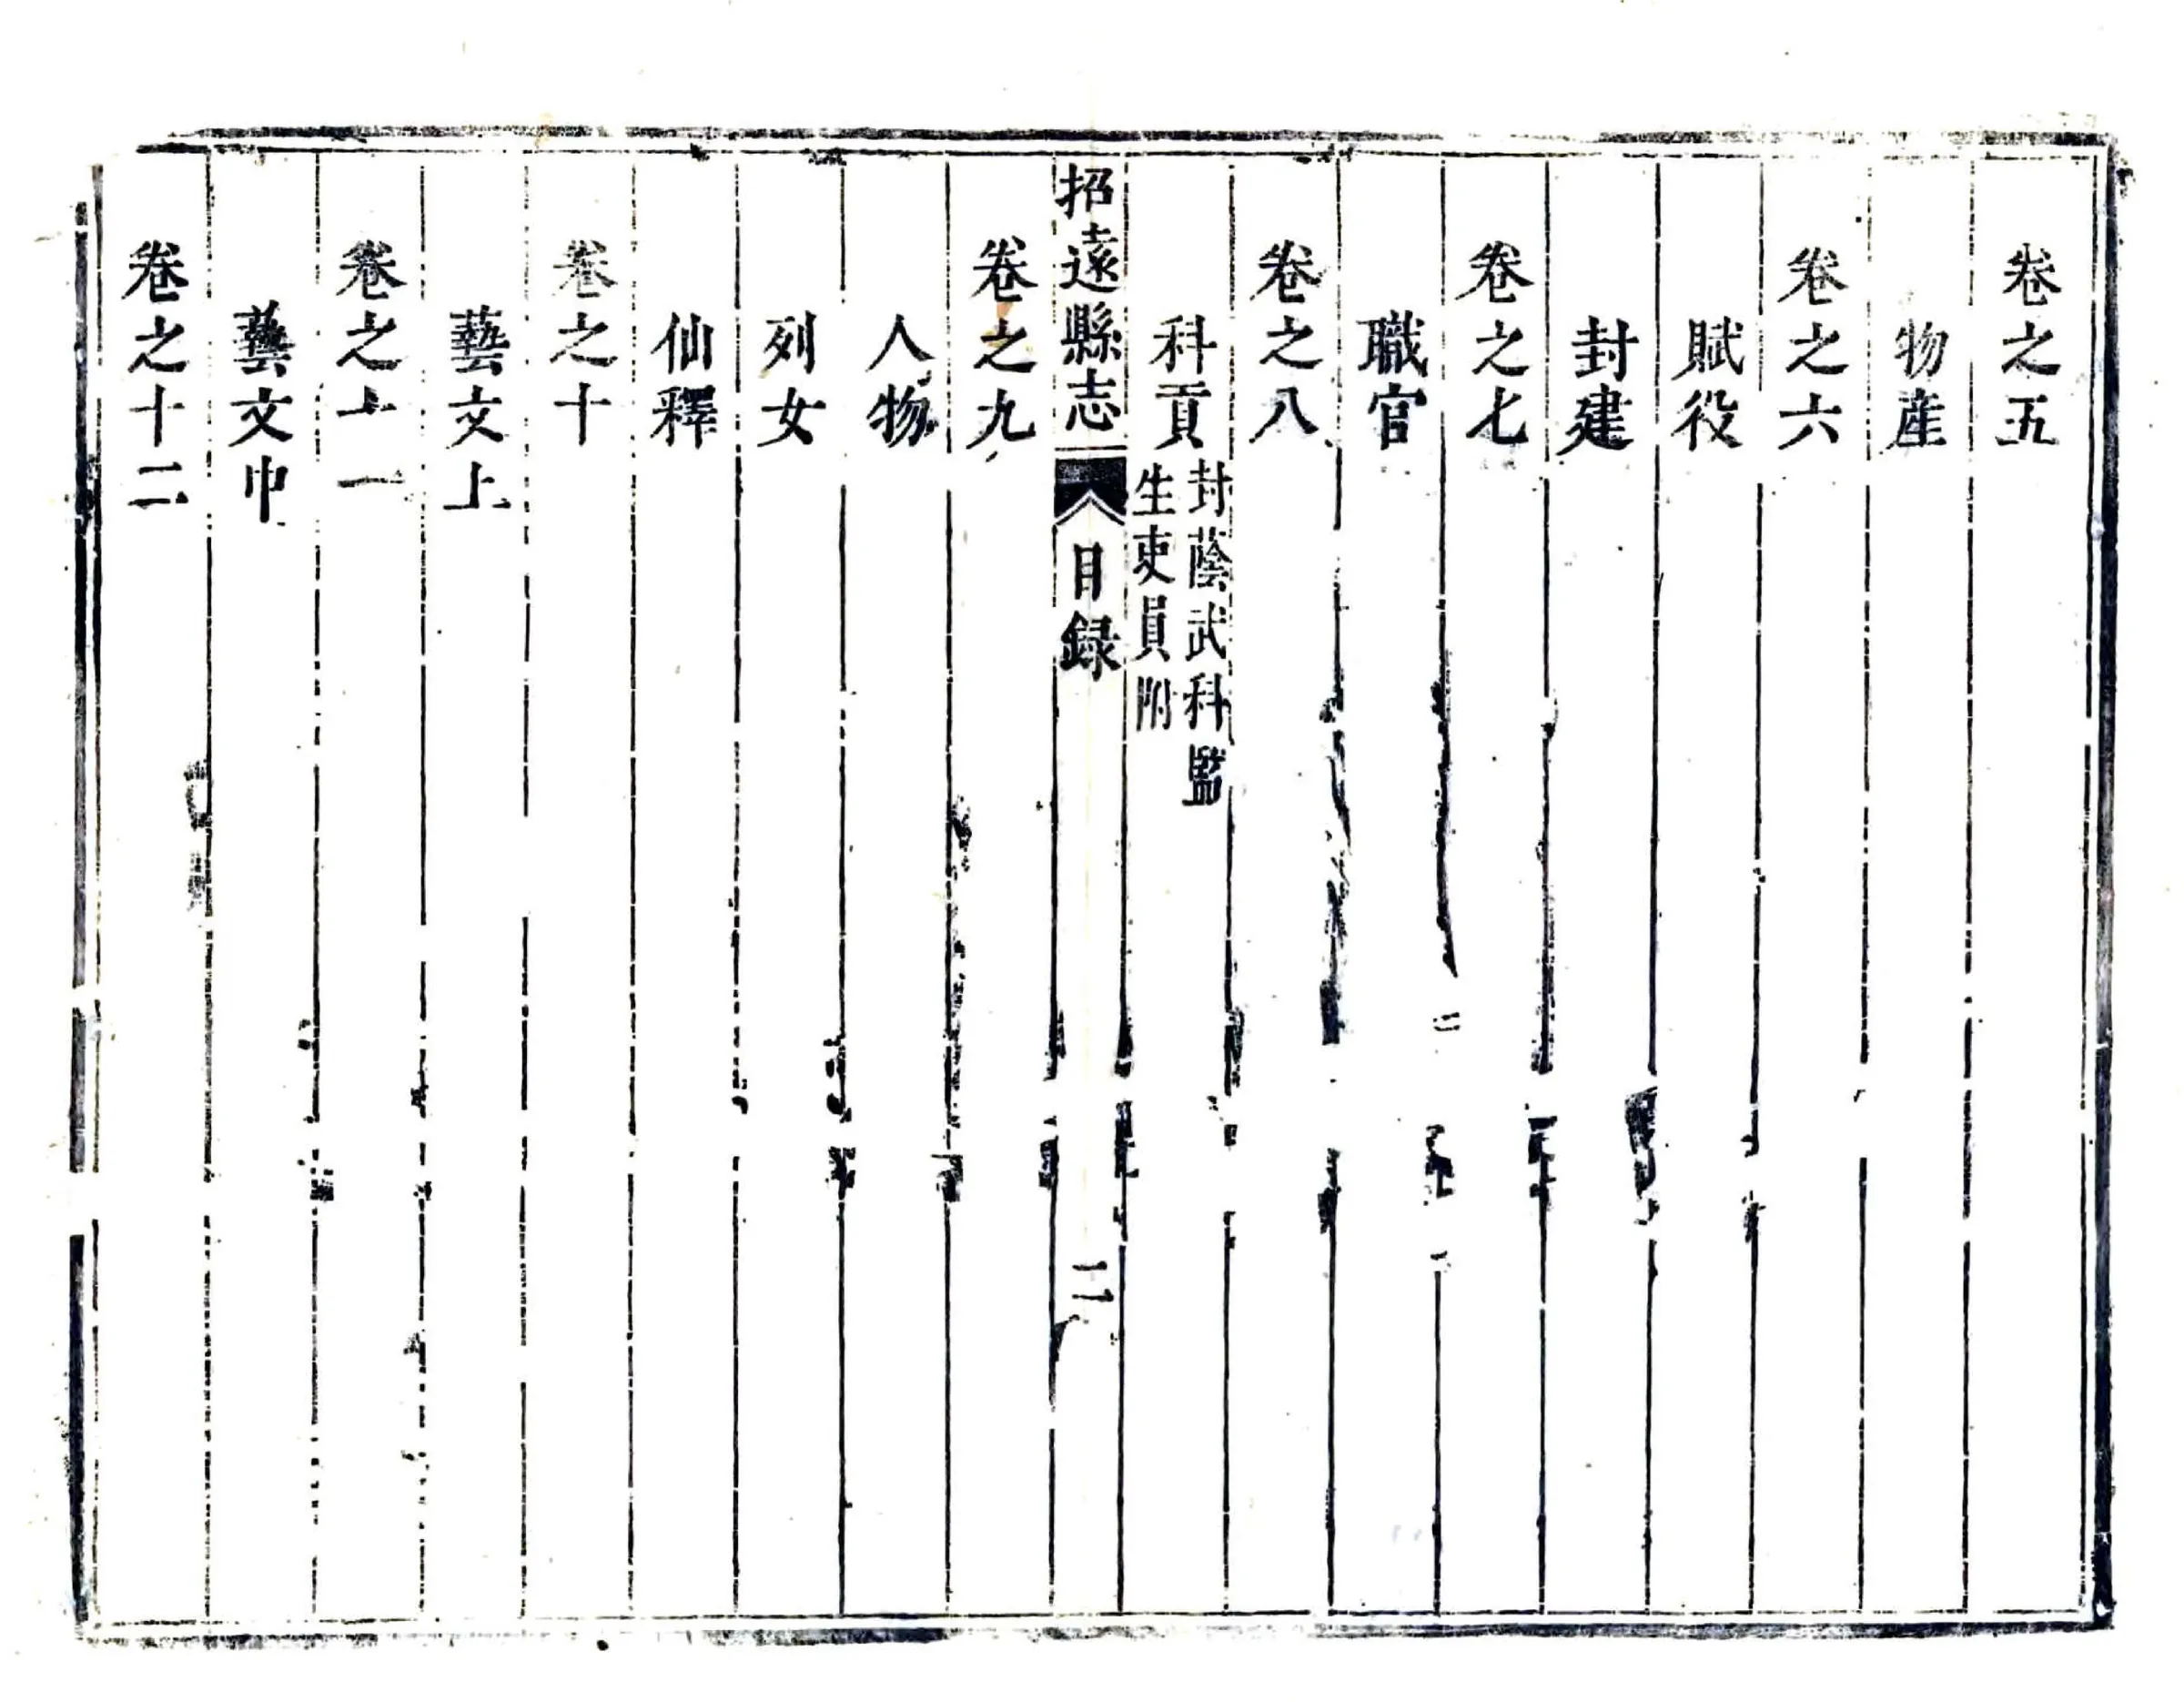 卷之五
物產
卷之六
賦役
封建
卷之七
職官
卷之八
科貢封蔭武科監
生吏員附
招遠縣志 目録 二
卷之九
人物
列女
仙釋
卷之十
藝文上
卷之十一
藝文中
卷之十二